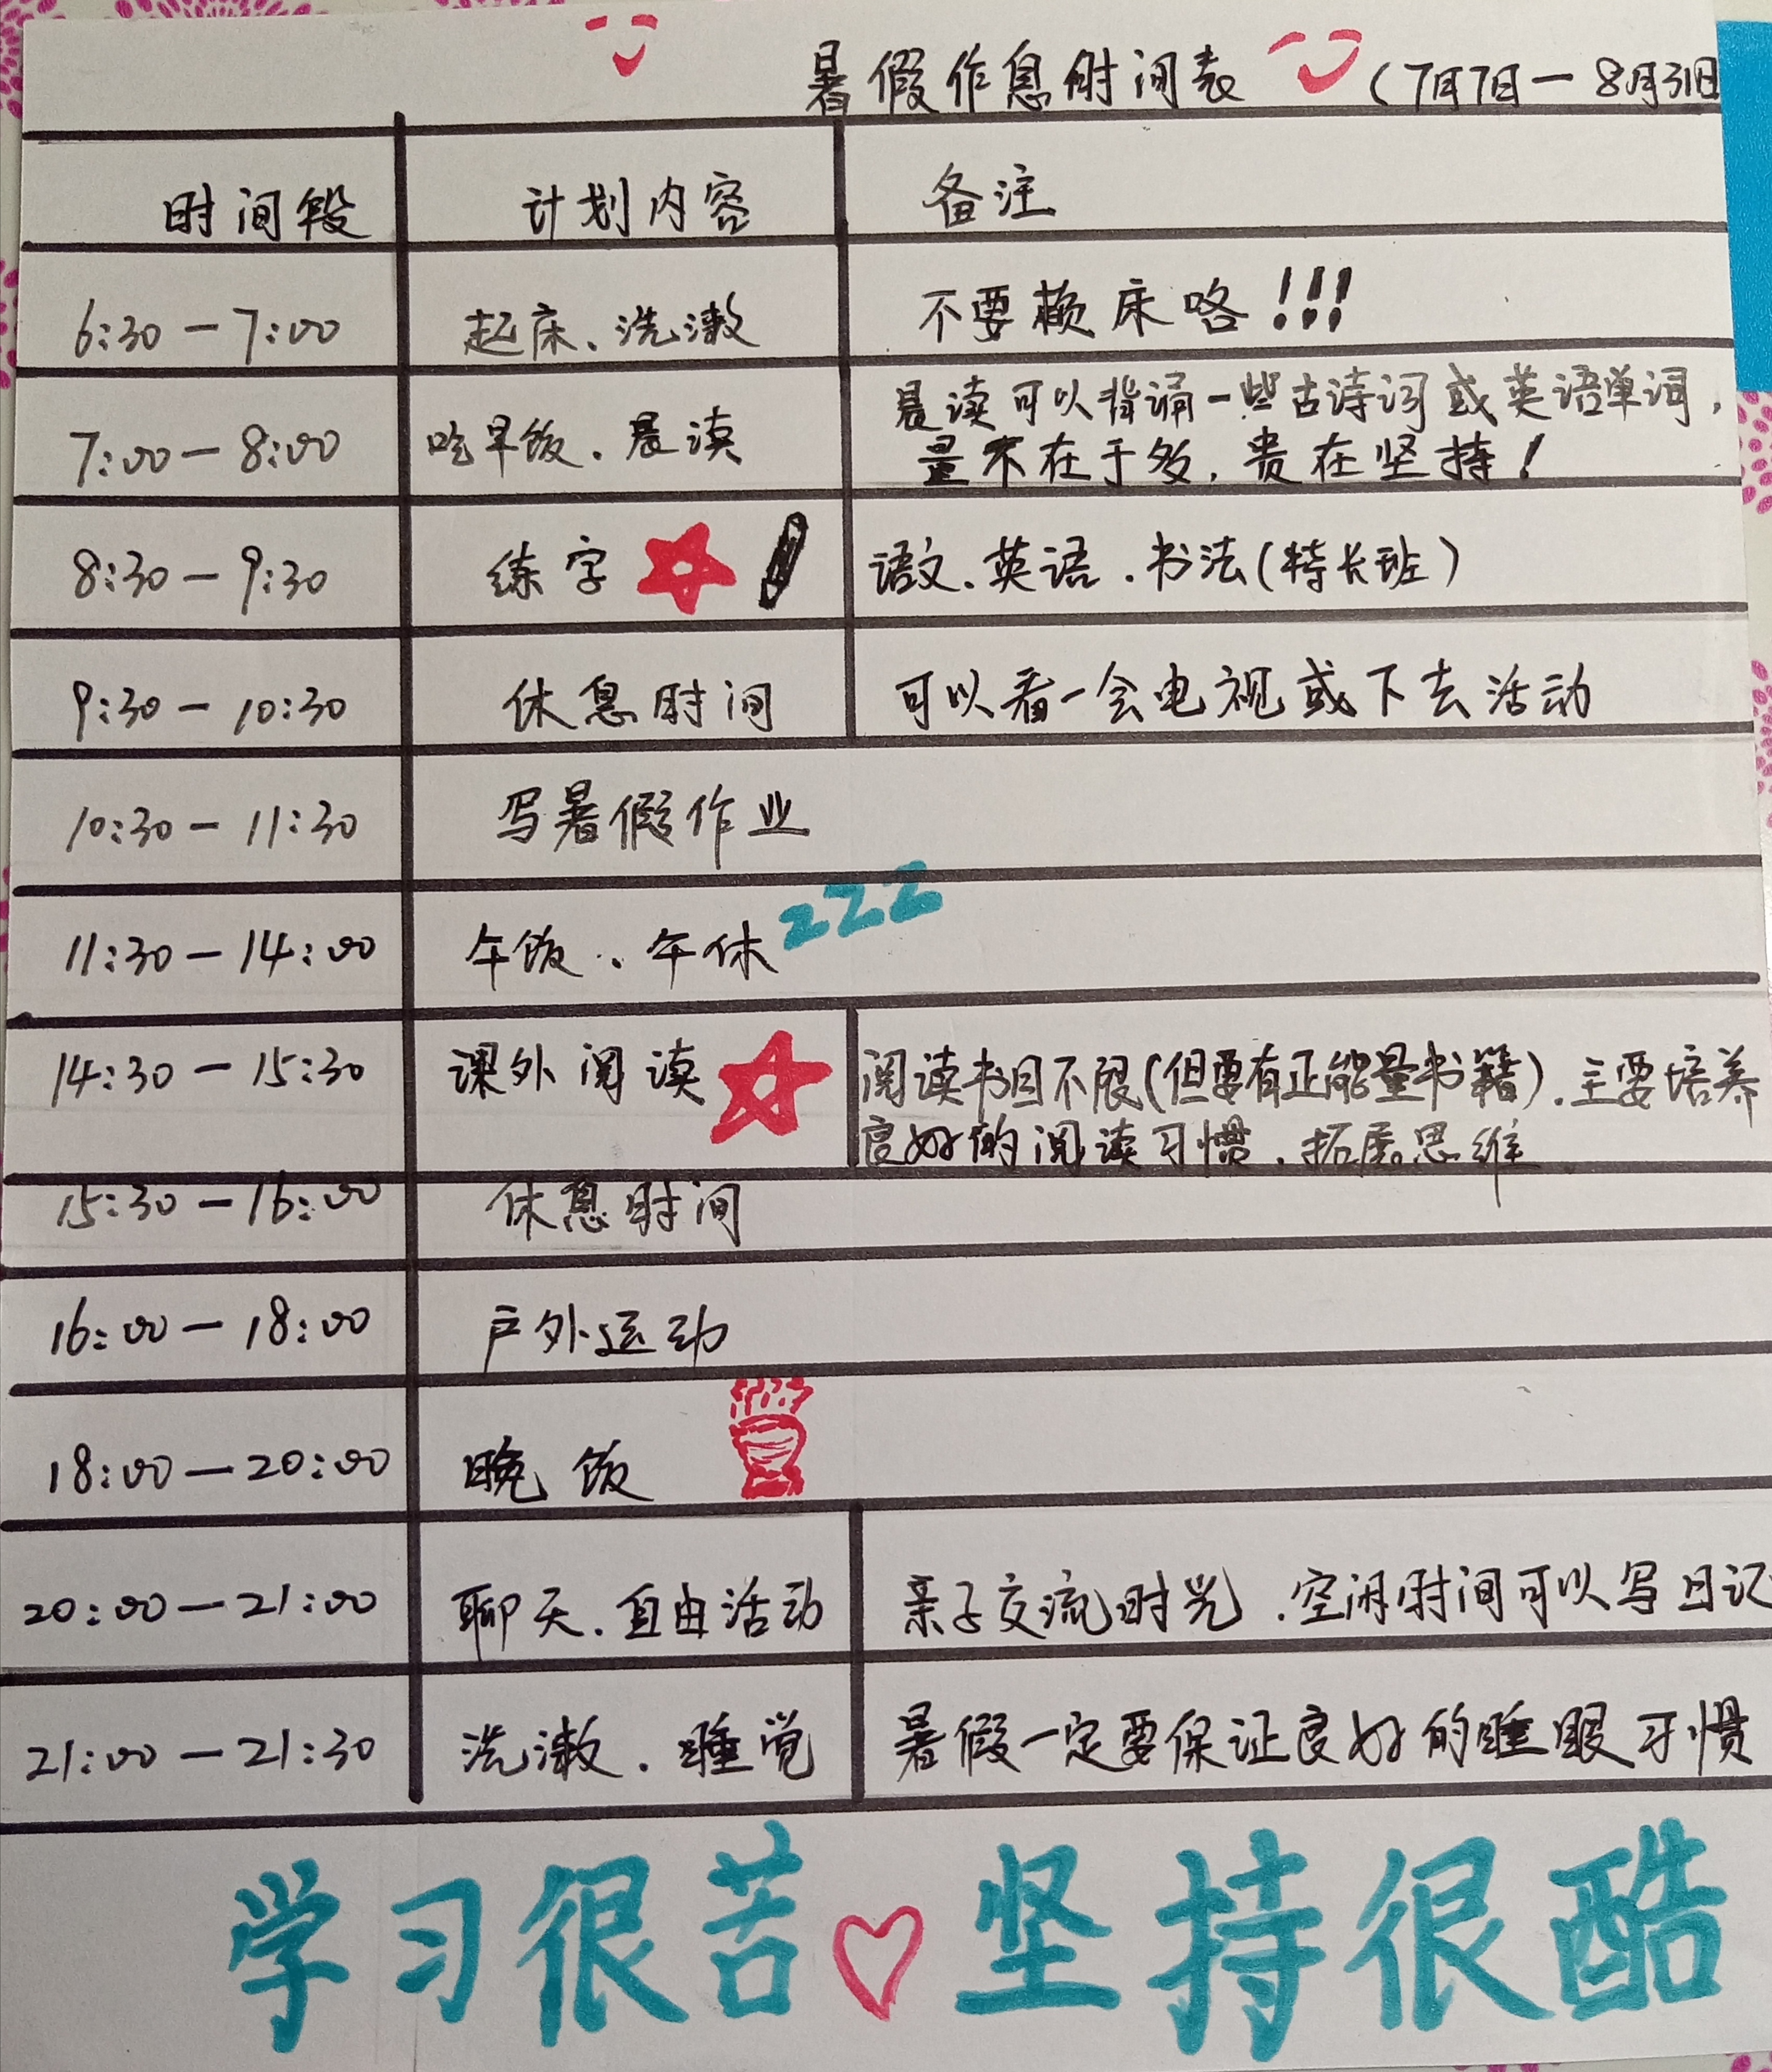 暑假作息时间表 (7月7日一8月31日
时间段 计划内容 备注
6:30－7:00 起床、洗漱 不要赖床咯!!!
7:00－8:00 吃早饭、晨读 晨读可以背诵一些古诗词或英语单词,
量不在于多,贵在坚持!
8:30－9:30 练字 语文、英语、书法(特长班)
9:30－10:30 休息时间 可以看一会电视或下去活动
10:30－11:30 写暑假作业
11:30－14:00 午饭、午休 ZZZ
14:30－15:30 课外阅读 阅读书目不限(但要有正能量书籍),主要培养
良好的阅读习惯,拓展思维
15:30－16:00 休息时间
16:00－18:00 户外运动
18:00－20:00 晚饭
20:00－21:00 聊天、自由活动 亲子交流时光,空闲时间可以写日记
21:00－21:30 洗漱、睡觉 暑假一定要保证良好的睡眠习惯
学习很苦♡坚持很酷